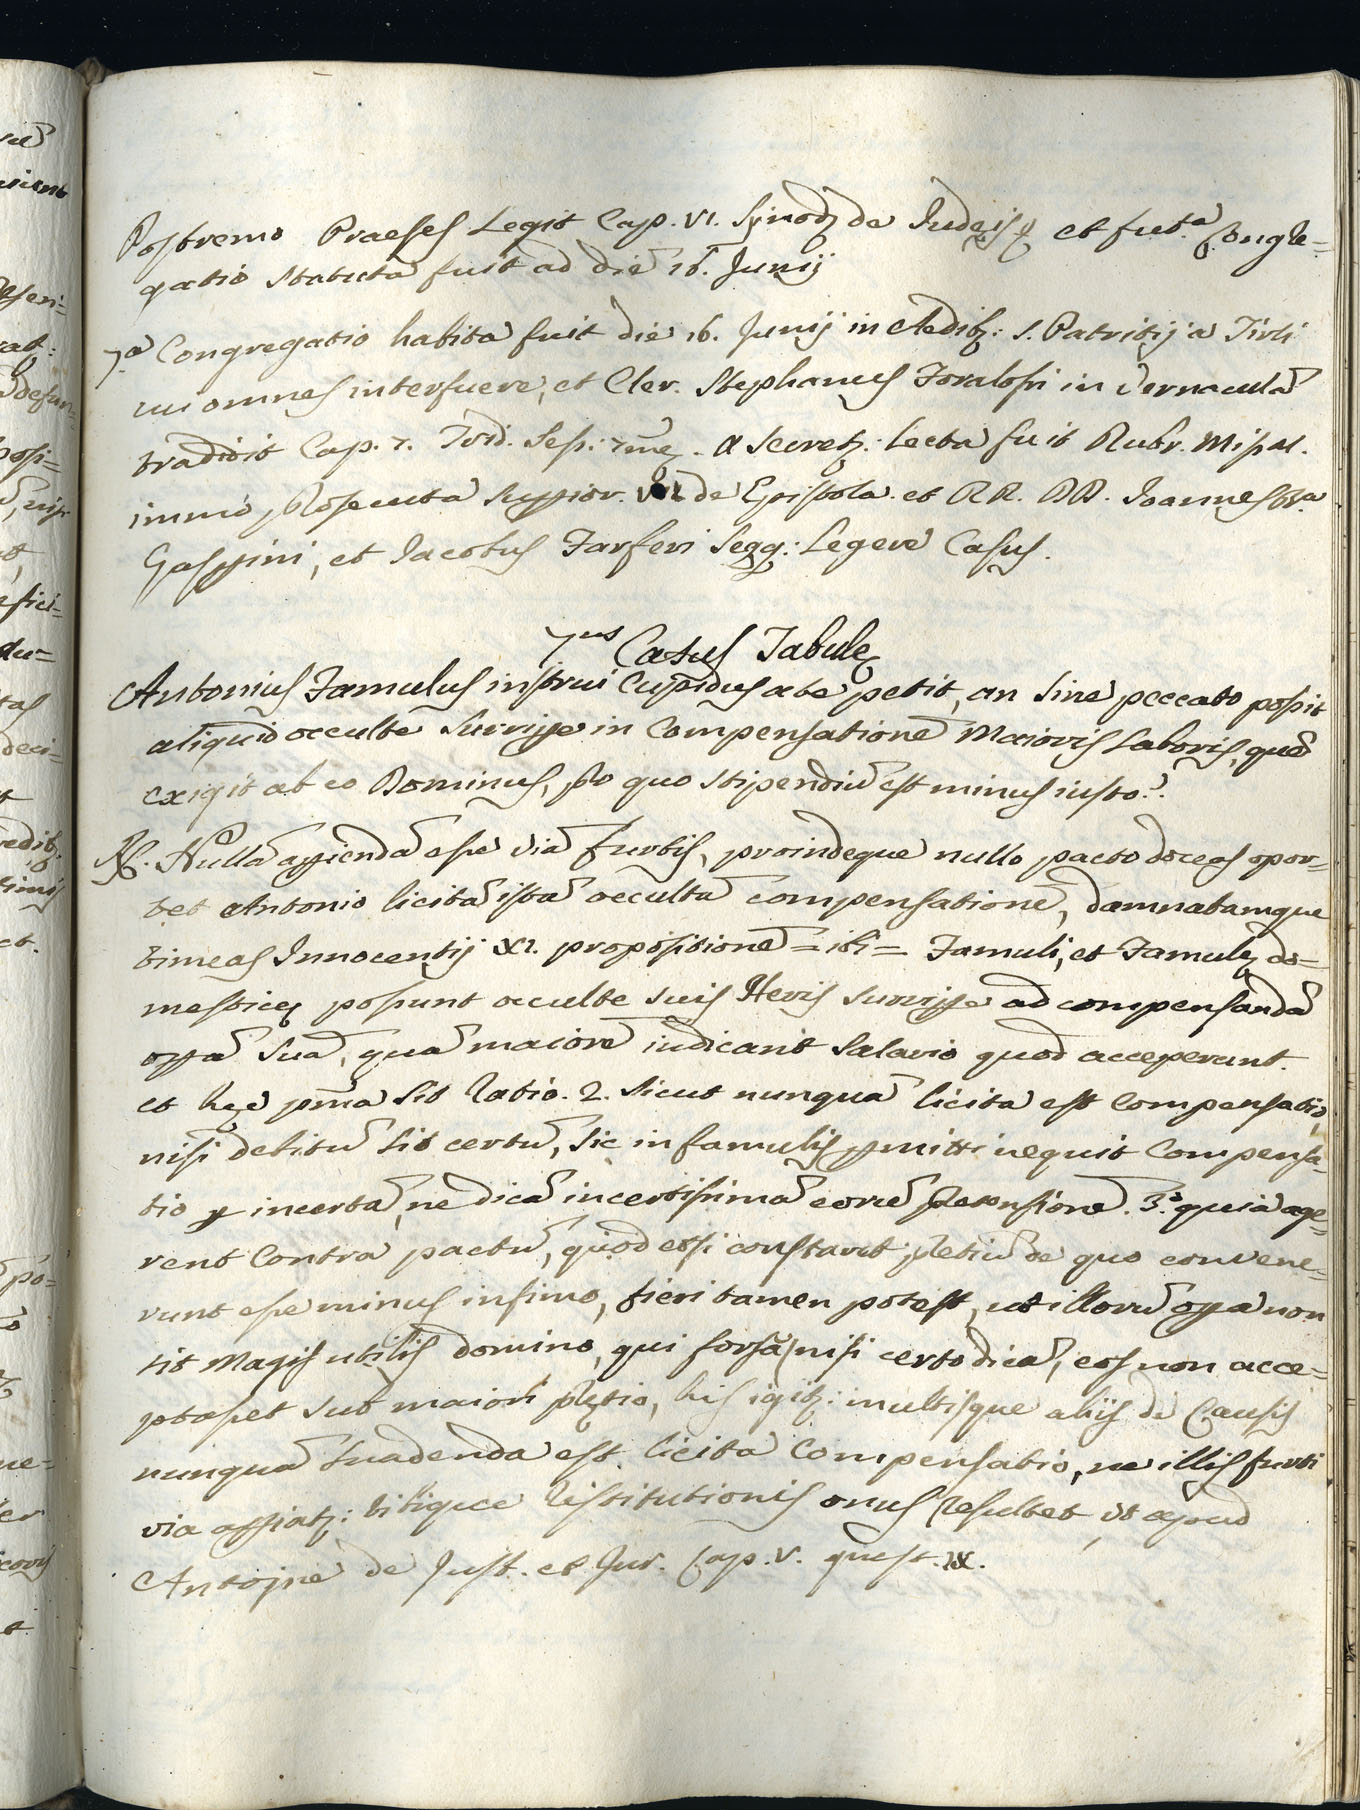 Postremo Praeses Legit Cap. VI. Synodi de Iudeis, et fut.ª Congre=
gatio statuta fuit ad diē 16. Junij
7.ª Congregatio habita fuit die 16. Junij in Aedib9: S. Patritij a Tirli
cui omnes interfuere, et Cler. Stephanus Toralossi in vernaculā
tradidit Cap. 7. Trid. Sess: 7mę. A Secret9: lecta fuit Rubr. Missal.
immo, prosecuta superior. de Epistola et RR. DD. Joannes Bta
Gaspini, et Iacobus Farferi seqq: Legere Casus.
7us Casus Tabulę
Antonius Famulus instrui Cupidus a te petit, an sine peccato possit
aliquid occulte surripe in Compensationē Maioris Laboris, quē
exigit ab eo Dominus, pro quo stipendiū est minus iusto?.
R. Nullā apiendā esse viā furtis, proindeque nullo pacto doceas opor=
tet Antonio licitā istā occultā compensationē, damnatamque
timeas Innocentij XI. propositionē = ibi = Famuli, et Famulę do=
mesticę possunt occulte suis Heris surripe ad compensandā
opā suā, quā maiorē iudicant salario quod acceperunt.
et hęc pma sit Ratio. 2. sicut nunquā licita est Compensatio,
nisi debitū sit certū, sic in famulis pmitti nequit Compensa=
tio p incertā, ne dicā incertissimā eorū pretensionē. 3.º quia age=
rent Contra pactū, quod etsi constaret pretiū de quo convene=
runt esse minus infimo, fieri tamen potest, ut illorū opa non
sit Magis utilis domino, qui forsā, nisi certo dicā, eos non acce=
ptasset sub maiori pretio, his igit9: multisque alijs de Causis
nunquā suadenda est licita Compensatio, ne illis furti
via apiat9: sibique Restitutionis onus Resultet, ut apud
Antojne de Just. et Jur. Cap. V. quest. IX.